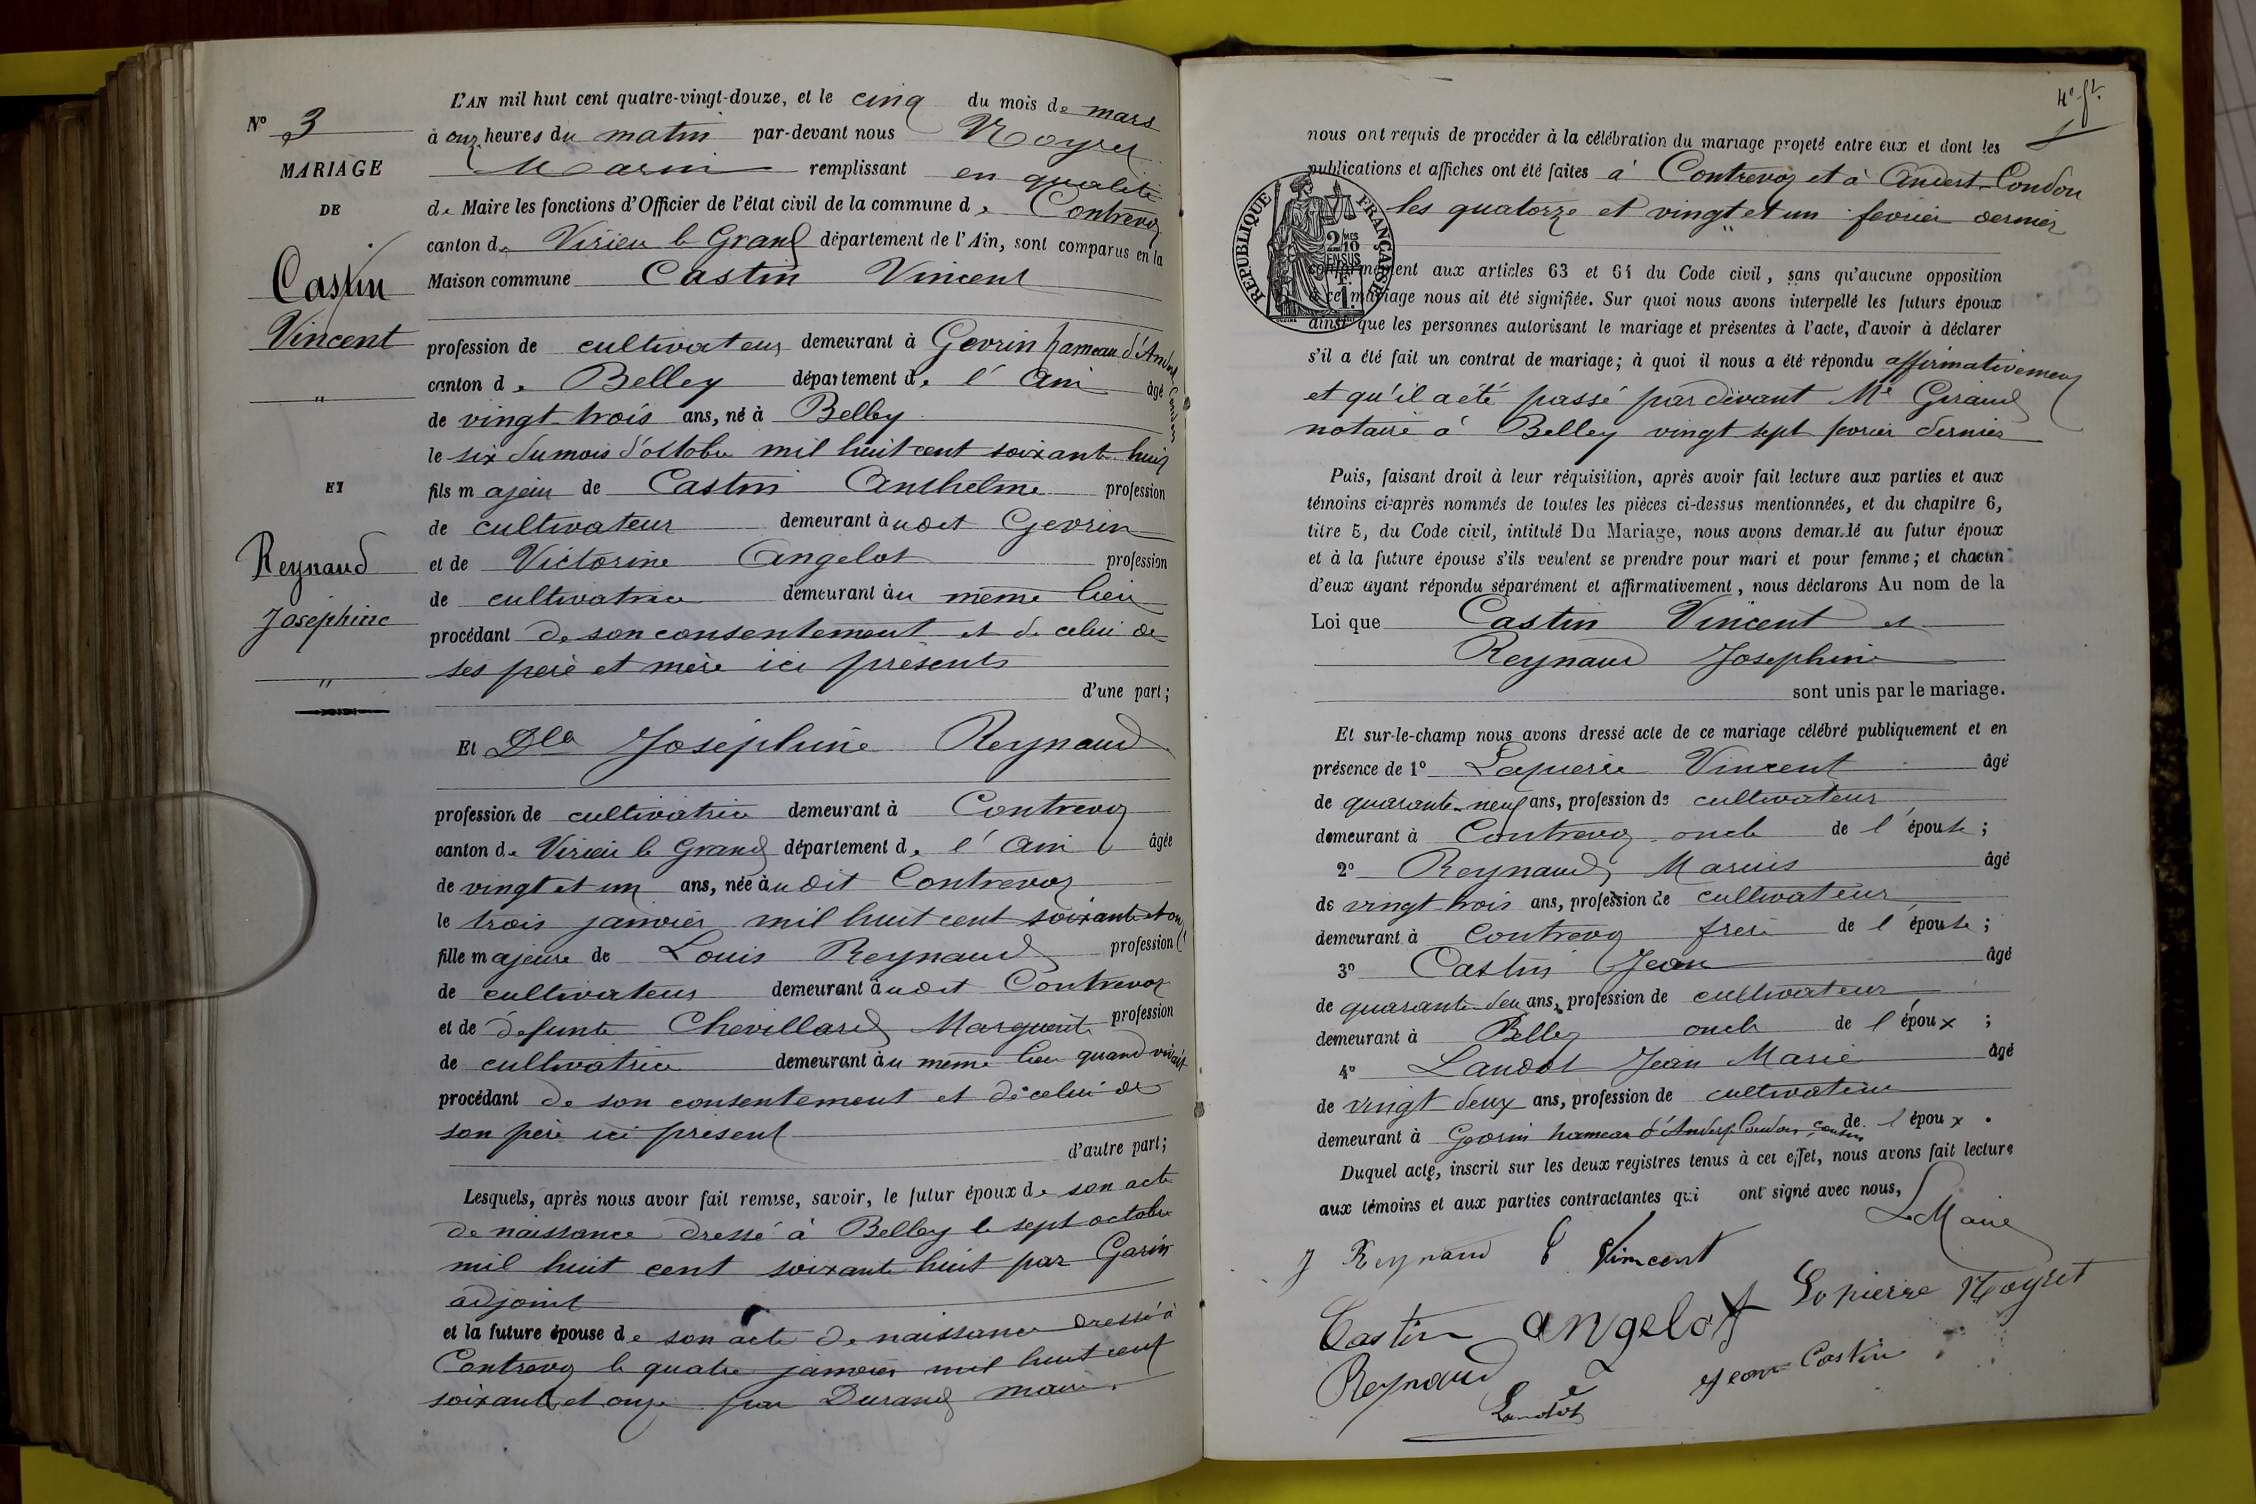 N° 3
MARIAGE
DE
Castin
Vincent
"
ET
Reynaud
Joséphine
"
L'AN mil huit cent quatre-vingt-douze, et le cinq du mois de mars
à onz heures du matin par-devant nous Moyret
Marin remplissant en qualité
de Maire les fonctions d'Officier de l'état civil de la commune d e Contrevoz
canton de Virieu le Grand département de l'Ain, sont comparus en la
Maison commune Castin Vincent
profession de cultivateur demeurant à Gevrin hameau d'Andert Condon
canton d e Belley département de l'Ain âgé
de vingt trois ans, né à Belley
le six du mois d'octobre mil huit cent soixante huit
fils majeur de Castin Anthelme profession
de cultivateur demeurant à udit Gevrin
et de Victorine Angelot profession
de cultivatrice demeurant àu même lieu
procédant de son consentement et de celui de
ses père et mère ici présents
d'une part;
Et Dlle Joséphine Reynaud
profession de cultivatrice demeurant à Contrevoz
canton de Virieu le Grand département de l'Ain âgée
de vingt et un ans, née àudit Contrevoz
le trois janvier mil huit cent soixante et onze
fille majeure de Louis Reynaud profession
de cultivateur demeurant àudit Contrevoz
et de défunte Chevillard Marguerite profession
de cultivatrice demeurant àu même lieu quand vivait
procédant de son consentement et de celui de
son père ici présent
d'autre part;
Lesquels, après nous avoir fait remise, savoir, le futur époux de son acte
de naissance dressé à Belley le sept octobre
mil huit cent soixante huit par Garin
adjoint
et la future épouse de son acte de naissance dressé à
Contrevoz le quatre janvier mil huit cent
soixante et onze par Durand maire.
4e ft.
nous ont requis de procéder à la célébration du mariage projeté entre eux et dont les
publications et affiches ont été faites à Contrevoz et à Andert-Condon
les quatorze et vingt et un fevrier dernier
RÉPUBLIQUE FRANÇAISE
2 MES
10
EN SUS
1 F.
conformément aux articles 63 et 64 du Code civil, sans qu'aucune opposition
à ce mariage nous ait été signifiée. Sur quoi nous avons interpellé les futurs époux
ainsi que les personnes autorisant le mariage et présentes à l'acte, d'avoir à déclarer
s'il a été fait un contrat de mariage; à quoi il nous a été répondu affirmativement
et qu'il a été passé pardevant Me Giraud
notaire à Belley vingt sept fevrier dernier
Puis, faisant droit à leur réquisition, après avoir fait lecture aux parties et aux
témoins ci-après nommés de toutes les pièces ci-dessus mentionnées, et du chapitre 6,
titre 5, du Code civil, intitulé Du Mariage, nous avons demandé au futur époux
et à la future épouse s'ils veulent se prendre pour mari et pour femme; et chacun
d'eux ayant répondu séparément et affirmativement, nous déclarons Au nom de la
Loi que Castin Vincent et
Reynaud Josephine
sont unis par le mariage.
Et sur-le-champ nous avons dressé acte de ce mariage célébré publiquement et en
présence de 1° Lapierre Vincent âgé
de quarante-neuf ans, profession de cultivateur
demeurant à Contrevoz oncle de l'épouse;
2° Reynaud Marius âgé
de vingt trois ans, profession de cultivateur
demeurant à Contrevoz frère de l'épouse;
3° Castin Jean âgé
de quarante deu ans, profession de cultivateur
demeurant à Belley oncle de l'époux;
4° Landot Jean Marie âgé
de vingt deux ans, profession de cultivateur
demeurant à Gevrin hameau d'Andert Condon, cousin de l'époux.
Duquel acte, inscrit sur les deux registres tenus à cet effet, nous avons fait lecture
aux témoins et aux parties contractantes qui ont signé avec nous,
Le Maire
J Reynaud C Vincent
Castin Angelot Lapierre Moyret
Reynaud Jean Castin
Landot